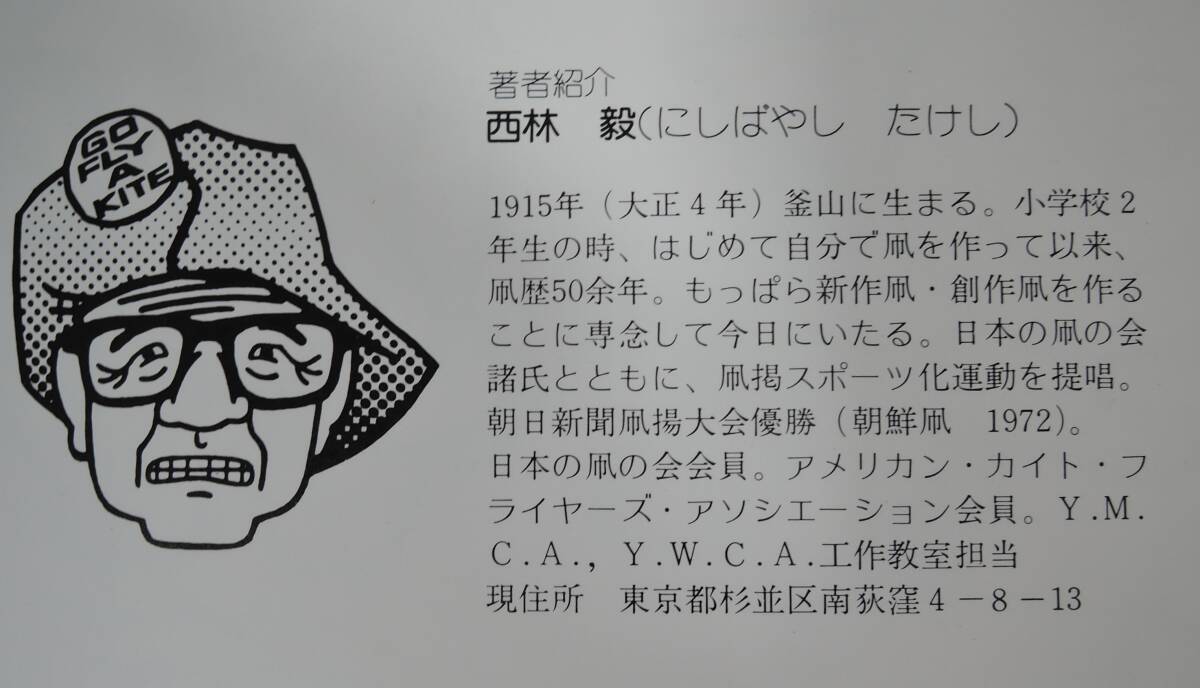 GO
FLY
A
KITE
著者紹介
西林　毅(にしばやし　たけし)
1915年（大正4年）釜山に生まる。小学校2
年生の時、はじめて自分で凧を作って以来、
凧歴50余年。もっぱら新作凧・創作凧を作る
ことに専念して今日にいたる。日本の凧の会
諸氏とともに、凧揚スポーツ化運動を提唱。
朝日新聞凧揚大会優勝（朝鮮凧　1972）。
日本の凧の会会員。アメリカン・カイト・フ
ライヤーズ・アソシエーション会員。Y.M.
C.A., Y.W.C.A.工作教室担当
現住所　東京都杉並区南荻窪4－8－13